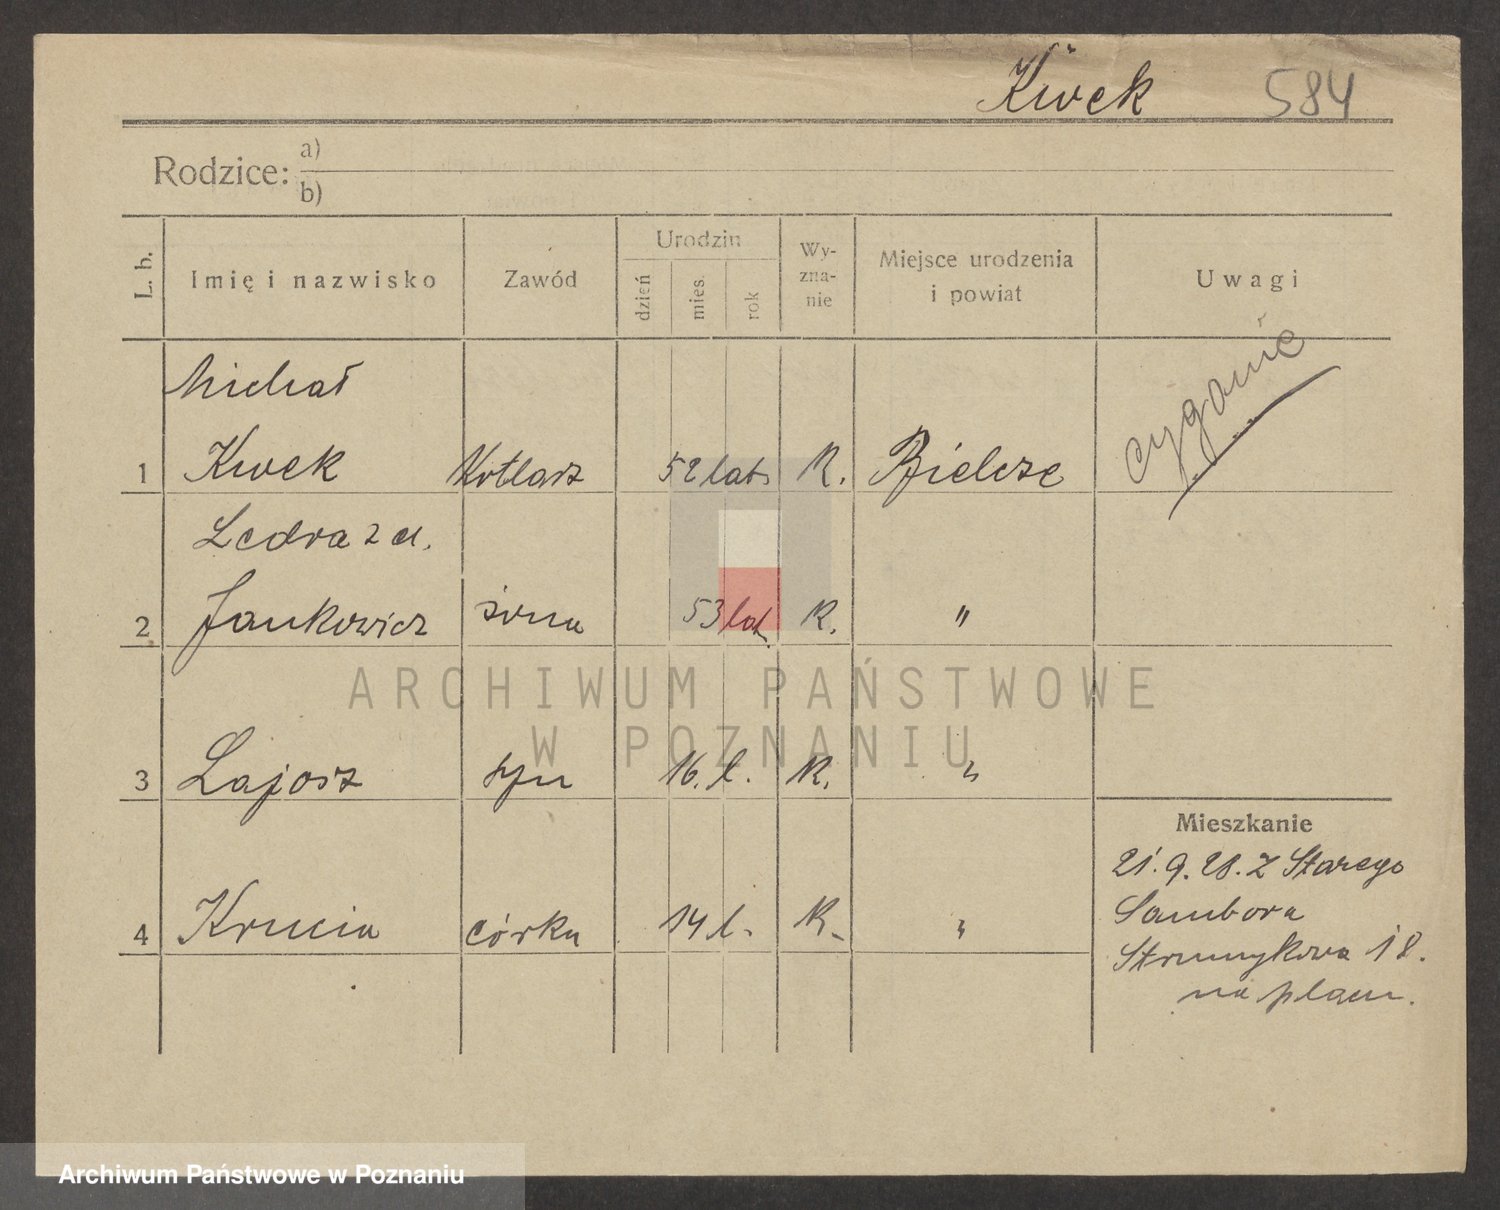 Kwek 584
Rodzice: a)
b)
L. b. Imię i nazwisko Zawód Urodzin dzień mies. rok Wy-zna-nie Miejsce urodzenia i powiat Uwagi
Michał
1 Kwek Kotlarz 52 lat R. Bielcze cyganie
Ledra z d.
2 Jankowicz żona 53 lat. R. "
ARCHIWUM PAŃSTWOWE
W POZNANIU
3 Lajosz syn 16. l. R. "
Mieszkanie
21.9.28. z Starego
4 Krucia córka 14 l. R. "
Sambora
Strumykowa 18.
na placu.
Archiwum Państwowe w Poznaniu